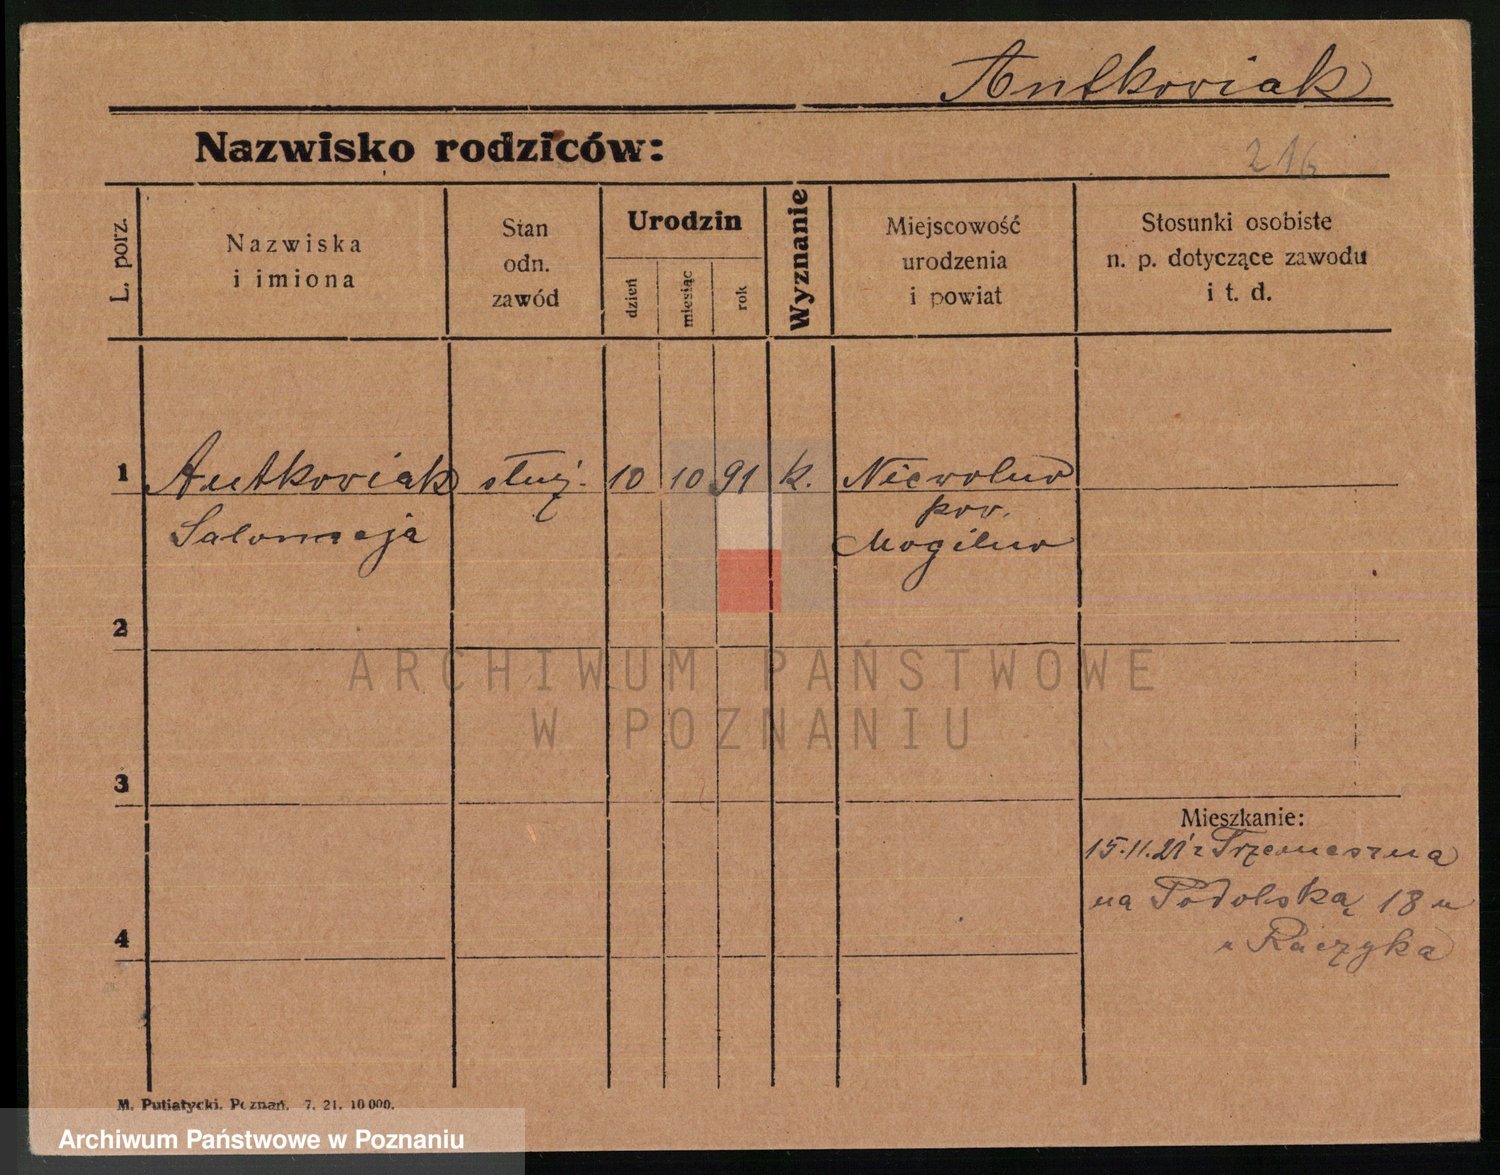 Antkowiak
Nazwisko rodziców:
216
L. porz.
Nazwiska
i imiona
Stan
odn.
zawód
Urodzin
dzień
miesiąc
rok
Wyznanie
Miejscowość
urodzenia
i powiat
Stosunki osobiste
n. p. dotyczące zawodu
i t. d.
1 Antkowiak służ. 10 10 91 k. Niewolno
pow.
Salomeja Mogilno
2
ARCHIWUM PAŃSTWOWE
W POZNANIU
3
Mieszkanie:
15.11.21 z Trzemeszna
na Podolską 18
4
u Raczyka
M. Putiatycki. Poznań. 7. 21. 10 000.
Archiwum Państwowe w Poznaniu